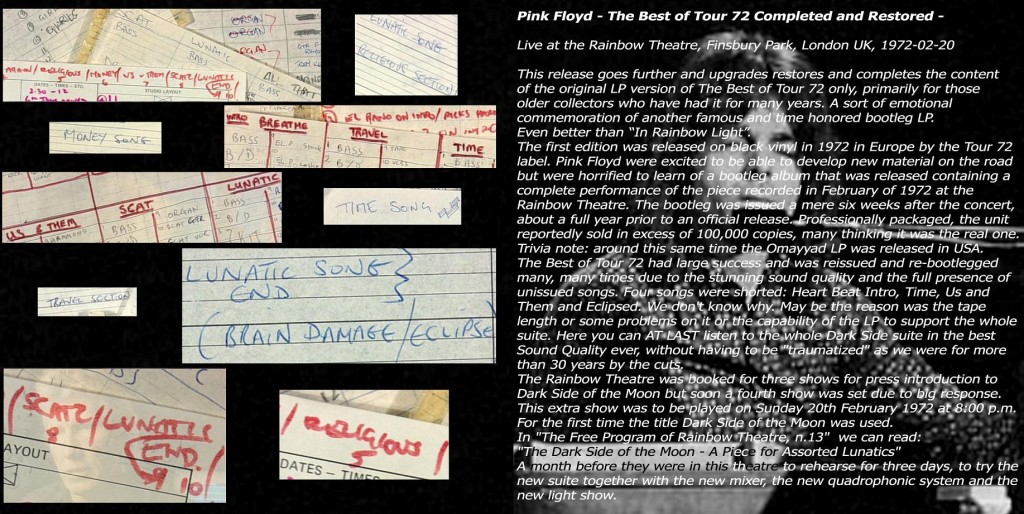 SCAT
LUNATIC
ORGAN
ORGAN
BASS
ALL
/ MONEY / US + THEM / SCAT / LUNATIC
5
6
END
9 10
DATES - TIMES - ETC.
STUDIO LAYOUT
2.30 - 12
LUNATIC SONG
RELIGIOUS SONG
MONEY SONG
INTRO
BREATHE
TRAVEL
TIME
BASS
BASS
BASS
B/D
US & THEM
SCAT
LUNATIC
BASS
ORGAN
BASS
B/D
B/D
TIME SONG
TRAVEL SECTION
LUNATIC SONG
END
(BRAIN DAMAGE/ECLIPSE
/ SCAT / LUNATIC
8
END.
9 10
AYOUT
/ RELIGIOUS /
5
DATES - TIMES
Pink Floyd - The Best of Tour 72 Completed and Restored -
Live at the Rainbow Theatre, Finsbury Park, London UK, 1972-02-20
This release goes further and upgrades restores and completes the content
of the original LP version of The Best of Tour 72 only, primarily for those
older collectors who have had it for many years. A sort of emotional
commemoration of another famous and time honored bootleg LP.
Even better than "In Rainbow Light".
The first edition was released on black vinyl in 1972 in Europe by the Tour 72
label. Pink Floyd were excited to be able to develop new material on the road
but were horrified to learn of a bootleg album that was released containing a
complete performance of the piece recorded in February of 1972 at the
Rainbow Theatre. The bootleg was issued a mere six weeks after the concert,
about a full year prior to an official release. Professionally packaged, the unit
reportedly sold in excess of 100,000 copies, many thinking it was the real one.
Trivia note: around this same time the Omayyad LP was released in USA.
The Best of Tour 72 had large success and was reissued and re-bootlegged
many, many times due to the stunning sound quality and the full presence of
unissued songs. Four songs were shorted: Heart Beat Intro, Time, Us and
Them and Eclipsed. We don't know why. May be the reason was the tape
length or some problems on it or the capability of the LP to support the whole
suite. Here you can AT LAST listen to the whole Dark Side suite in the best
Sound Quality ever, without having to be "traumatized" as we were for more
than 30 years by the cuts.
The Rainbow Theatre was booked for three shows for press introduction to
Dark Side of the Moon but soon a fourth show was set due to big response.
This extra show was to be played on Sunday 20th February 1972 at 8:00 p.m.
For the first time the title Dark Side of the Moon was used.
In "The Free Program of Rainbow Theatre, n.13" we can read:
"The Dark Side of the Moon - A Piece for Assorted Lunatics"
A month before they were in this theatre to rehearse for three days, to try the
new suite together with the new mixer, the new quadrophonic system and the
new light show.